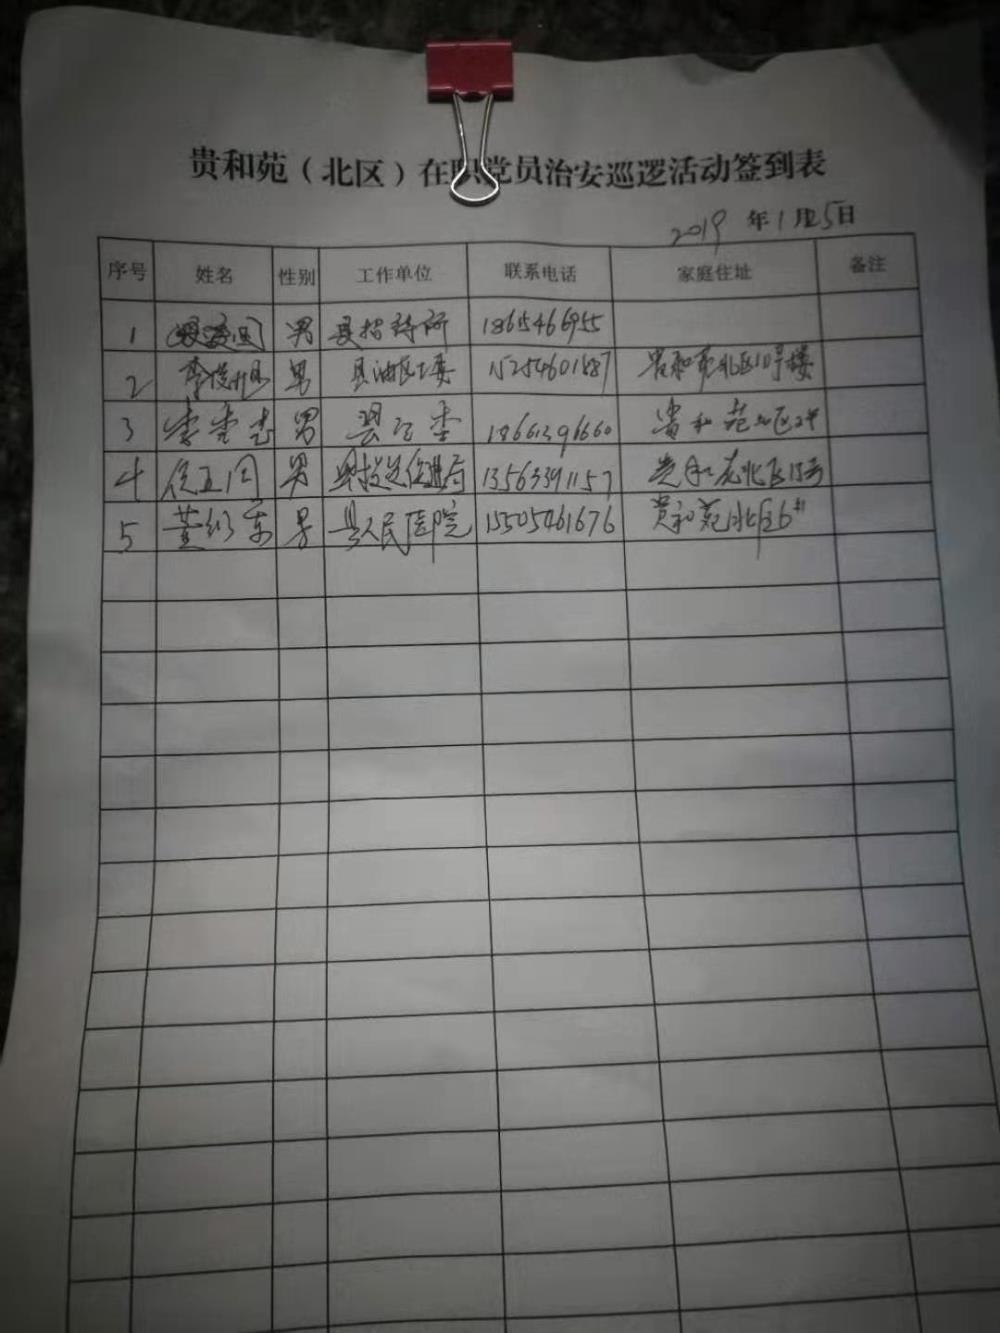 贵和苑（北区）在职党员治安巡逻活动签到表
2019 年1月25日
序号 姓名 性别 工作单位 联系电话 家庭住址 备注
1 男 县招待所 1865466955
2 男 县油区工委 15254601887 贵和苑北区10号楼
3 男 18661391660 贵和苑北区2#
4 男 县投资促进局 13563391157 贵和苑北区15号
5 男 县人民医院 15505461676 贵和苑北区6#